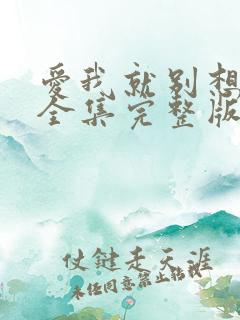 爱我就别想
全集完整版
仗键走天涯
未经同意禁止转载